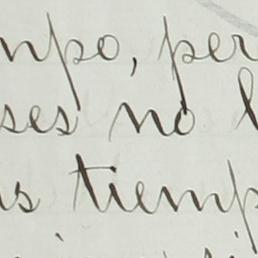 mpo, per
ses no l
as tiemp